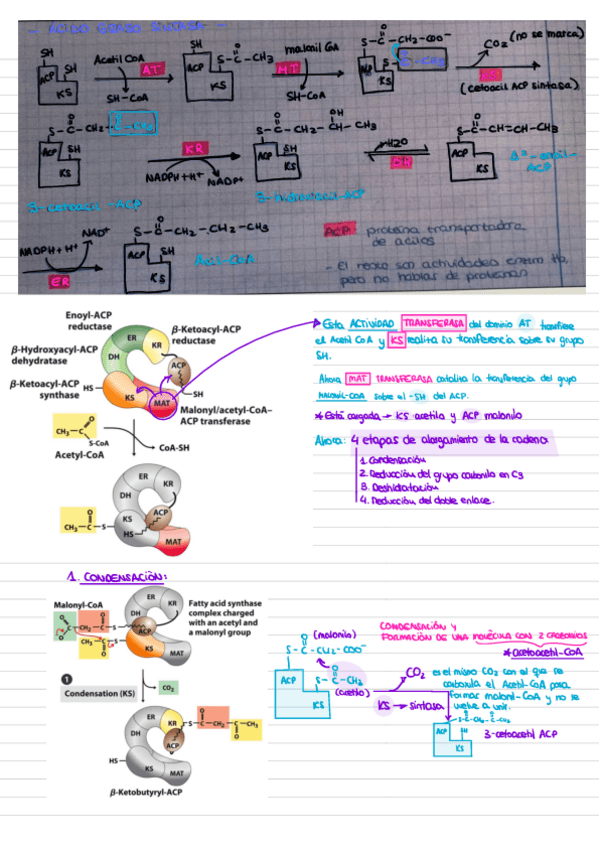 - ÁCIDO GRASO SINTASA -
SH
SH
ACP
KS
Acetil CoA
AT
SH-CoA
SH
O
S-C-CH3
ACP
KS
malonil CoA
MT
SH-CoA
O
S-C-CH2-COO-
S-C-CH3
ACP
KS
CO2 (no se marca)
KS
(cetoacil ACP sintasa)
O
S-C-CH2-C-CH3
ACP
SH
KS
3-cetoacil-ACP
KR
NADPH+H+
NADP+
O
OH
S-C-CH2-CH-CH3
ACP
SH
KS
3-hidroxiacil-ACP
H2O
DH
O
S-C-CH=CH-CH3
ACP
KS
NADPH+H+
NAD+
ER
O
S-C-CH2-CH2-CH3
ACP
SH
KS
Acil-CoA
ACP: proteína transportadora
de acilos
- El resto son actividades
pero no hablas de proteínas
Enoyl-ACP
reductase
β-Ketoacyl-ACP
reductase
β-Hydroxyacyl-ACP
dehydratase
β-Ketoacyl-ACP
synthase
ER
KR
DH
ACP
HS
KS
MAT
SH
Malonyl/acetyl-CoA–
ACP transferase
O
CH3-C
S-CoA
Acetyl-CoA
CoA-SH
ER
KR
DH
O
CH3-C-S
KS
ACP
HS
MAT
Esta ACTIVIDAD TRANSFERASA del dominio AT transfiere
el Acetil CoA y KS realiza su transferencia sobre su grupo
SH.
Ahora MAT TRANSFERASA cataliza la transferencia del grupo
MALONIL-COA sobre el -SH del ACP.
* Está cargada → KS acetilo y ACP malonilo
Ahora: 4 etapas de alargamiento de la cadena
1. Condensación
2. Reducción del grupo carbonilo en C3
3. Deshidratación
4. Reducción del doble enlace.
1. CONDENSACIÓN:
Malonyl-CoA
ER
KR
DH
ACP
KS
MAT
Fatty acid synthase
complex charged
with an acetyl and
a malonyl group
1
Condensation (KS)
CO2
ER
KR
DH
ACP
HS
KS
MAT
β-Ketobutyryl-ACP
CONDENSACIÓN Y
FORMACIÓN DE UNA MOLÉCULA CON 2 CARBONILOS
* acetoacetil-CoA
O (malonilo)
S-C-CH2-COO-
ACP
O
S-C-CH3
(acetilo)
KS
CO2
es el mismo CO2 con el que se
carboxila el Acetil-CoA para
formar malonil-CoA y no se
vuelve a unir.
KS → sintasa
O O
S-C-CH2-C-CH3
ACP
SH
KS
3-cetoacetil ACP